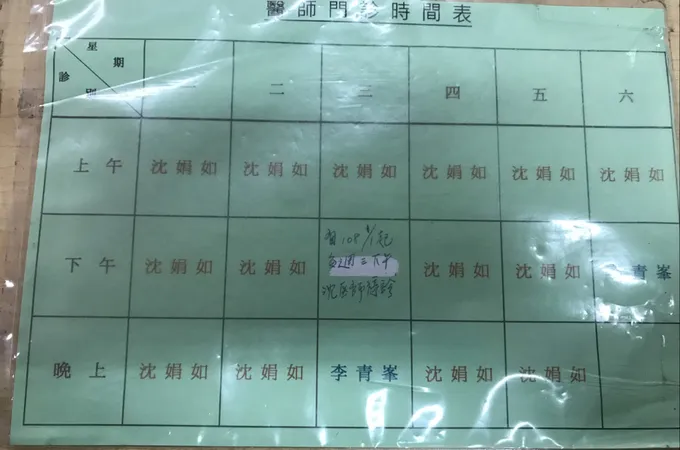 醫師門診時間表
星期
診別
一 二 三 四 五 六
上午 沈娟如 沈娟如 沈娟如 沈娟如 沈娟如 沈娟如
下午 沈娟如 沈娟如 沈娟如 沈娟如 青峯
自108 起
每週三下午
沈醫師停診
晚上 沈娟如 沈娟如 李青峯 沈娟如 沈娟如